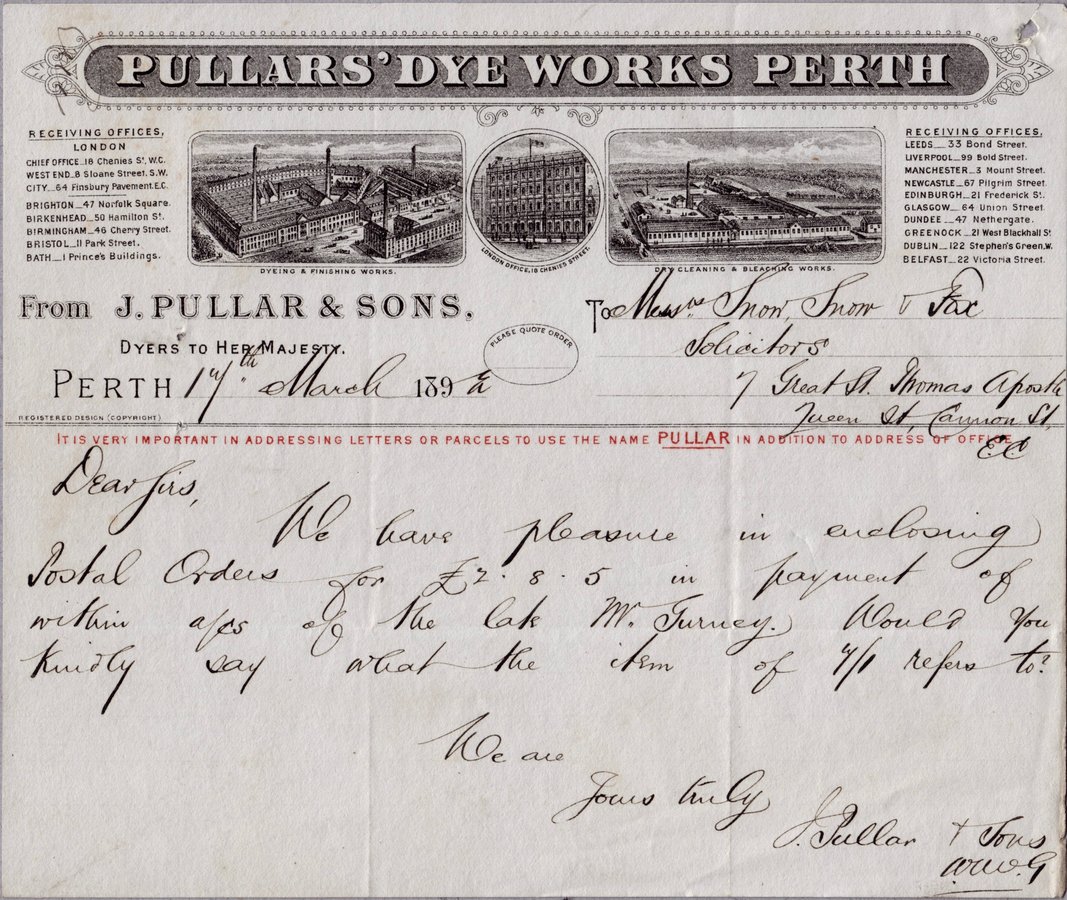 PULLARS' DYE WORKS PERTH
RECEIVING OFFICES,
LONDON
CHIEF OFFICE_18 Chenies St, W.C.
WEST END_8 Sloane Street. S.W.
CITY_64 Finsbury Pavement. E.C.
BRIGHTON_47 Norfolk Square.
BIRKENHEAD_50 Hamilton St.
BIRMINGHAM_46 Cherry Street.
BRISTOL_11 Park Street.
BATH_1 Prince's Buildings.
DYEING & FINISHING WORKS.
LONDON OFFICE, 18 CHENIES STREET.
DRY CLEANING & BLEACHING WORKS.
RECEIVING OFFICES,
LEEDS_33 Bond Street.
LIVERPOOL_99 Bold Street.
MANCHESTER_3 Mount Street.
NEWCASTLE_67 Pilgrim Street.
EDINBURGH_21 Frederick St.
GLASGOW_64 Union Street.
DUNDEE_47 Nethergate.
GREENOCK_21 West Blackhall St
DUBLIN_122 Stephen's Green, W.
BELFAST_22 Victoria Street.
From J. PULLAR & SONS.
DYERS TO HER MAJESTY.
PLEASE QUOTE ORDER
To Messrs. Snow, Snow & Fox
Solicitors
7 Great St. Thomas Apostle
Queen St, Cannon St,
E.C.
PERTH 17th March 189
REGISTERED DESIGN (COPYRIGHT)
IT IS VERY IMPORTANT IN ADDRESSING LETTERS OR PARCELS TO USE THE NAME PULLAR IN ADDITION TO ADDRESS OF OFFICE
Dear Sirs,
We have pleasure in enclosing
Postal Orders for £2.8.5 in payment of
within a/cs of the late Mr. Turney. Would you
kindly say what the item of 7/1 refers to?
We are
Yours truly
J. Pullar & Sons